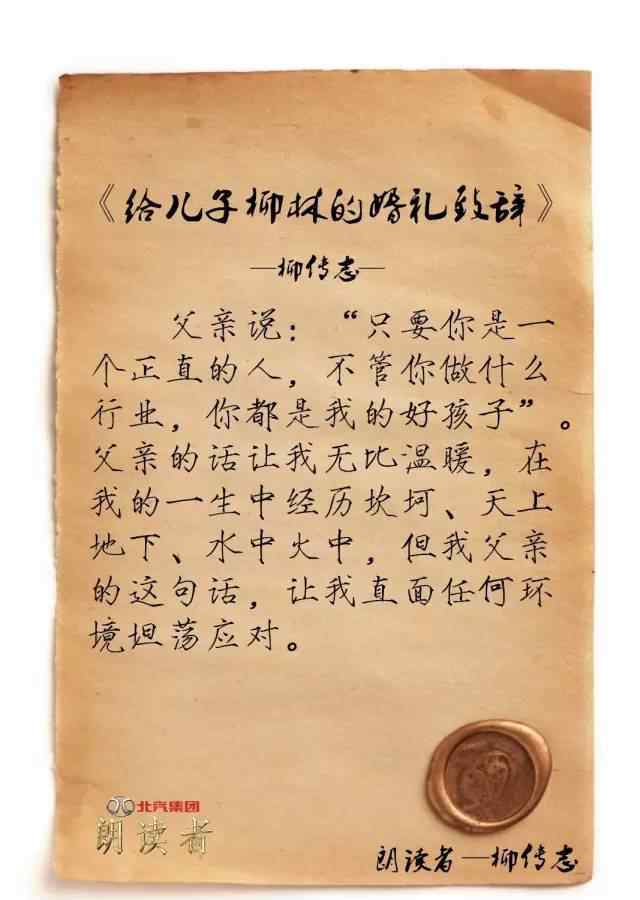 《给儿子柳林的婚礼致辞》
—柳传志—
父亲说：“只要你是一
个正直的人，不管你做什么
行业，你都是我的好孩子”。
父亲的话让我无比温暖，在
我的一生中经历坎坷、天上
地下、水中火中，但我父亲
的这句话，让我直面任何环
境坦荡应对。
北汽集团
朗读者
朗读者—柳传志